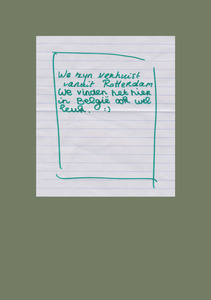 We zyn verhuist
vanuit Rotterdam
We vinden het hier
in België ook wel
leuk. :)